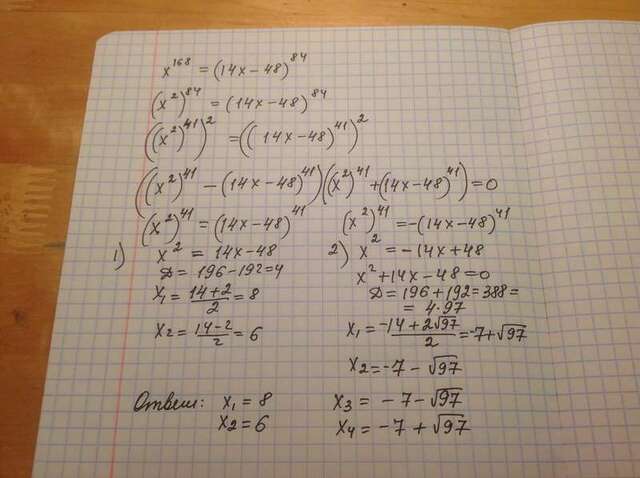 x^168 = (14x-48)^84
(x^2)^84 = (14x-48)^84
((x^2)^41)^2 = ((14x-48)^41)^2
((x^2)^41 - (14x-48)^41)((x^2)^41 + (14x-48)^41) = 0
(x^2)^41 = (14x-48)^41
1) x^2 = 14x-48
D = 196-192=4
x1 = (14+2)/2 = 8
x2 = (14-2)/2 = 6
(x^2)^41 = -(14x-48)^41
2) x^2 = -14x+48
x^2+14x-48=0
D = 196+192=388=
= 4·97
x1 = (-14+2√97)/2 = -7+√97
x2 = -7-√97
Ответ: x1 = 8
x2 = 6
x3 = -7-√97
x4 = -7+√97